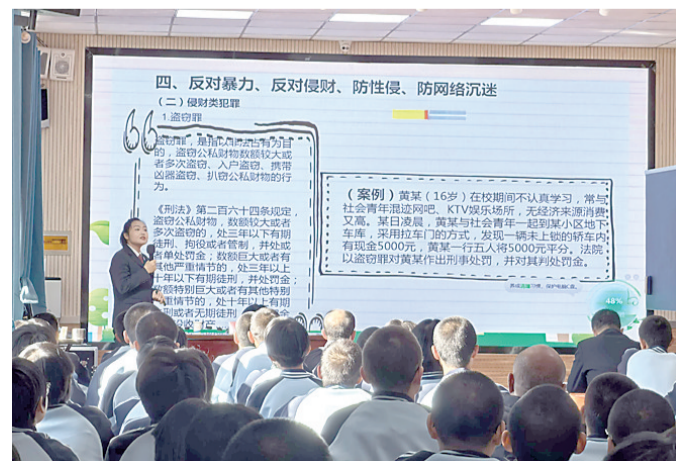 四、反对暴力、反对侵财、防性侵、防网络沉迷
（二）侵财类犯罪
1.盗窃罪
盗窃罪，是指以非法占有为目
的，盗窃公私财物数额较大或
者多次盗窃、入户盗窃、携带
凶器盗窃、扒窃公私财物的行
为。
《刑法》第二百六十四条规定，
盗窃公私财物，数额较大或者
多次盗窃的，处三年以下有期
徒刑、拘役或者管制，并处或
者单处罚金；数额巨大或者有
其他严重情节的，处三年以上
十年以下有期徒刑，并处罚金；
数额特别巨大或者有其他特别
严重情节的，处十年以上有期
徒刑或者无期徒刑
（案例）黄某（16岁）在校期间不认真学习，常与
社会青年混迹网吧、KTV娱乐场所，无经济来源消费
又高。某日凌晨，黄某与社会青年一起到某小区地下
车库，采用拉车门的方式，发现一辆未上锁的轿车内
有现金5000元，黄某一行五人将5000元平分。法院
以盗窃罪对黄某作出刑事处罚，并对其判处罚金。
48%